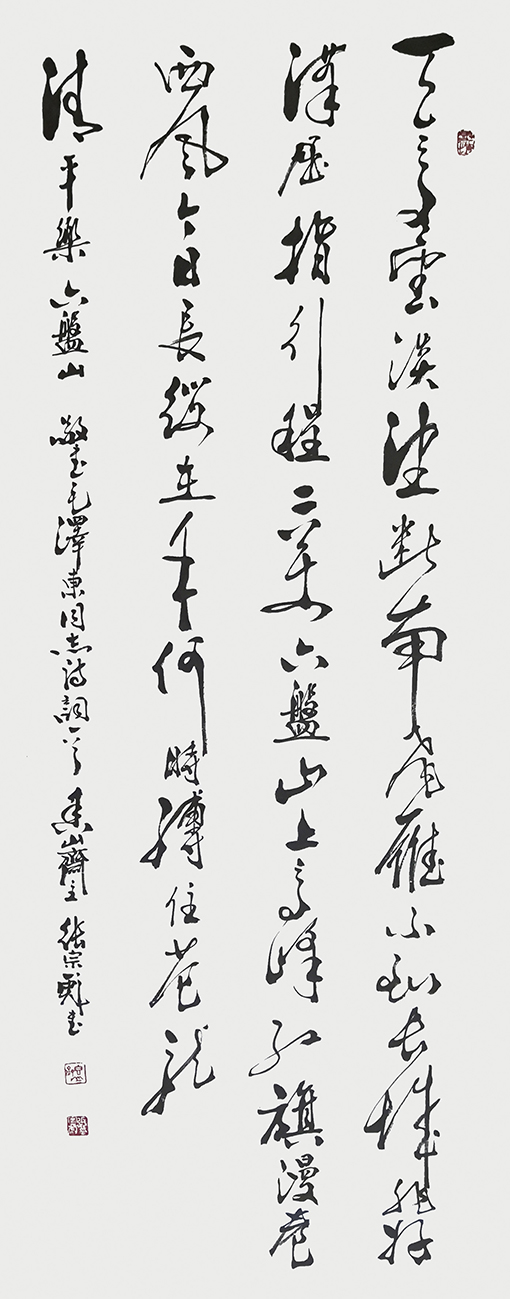 天高雲淡望斷南飛雁不到長城非好
漢屈指行程二萬六盤山上高峰紅旗漫卷
西風今日長纓在手何時縛住蒼龍
清平樂 六盤山 敬書毛澤東同志詩詞一首 山齋主 張宗彪書